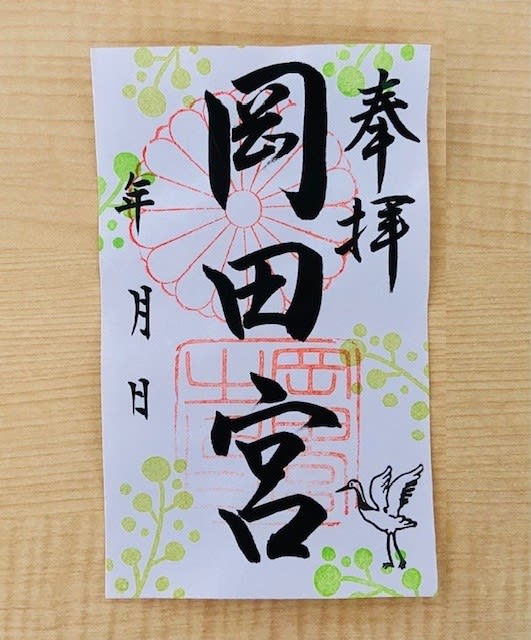 奉拝
岡田宮
年 月 日